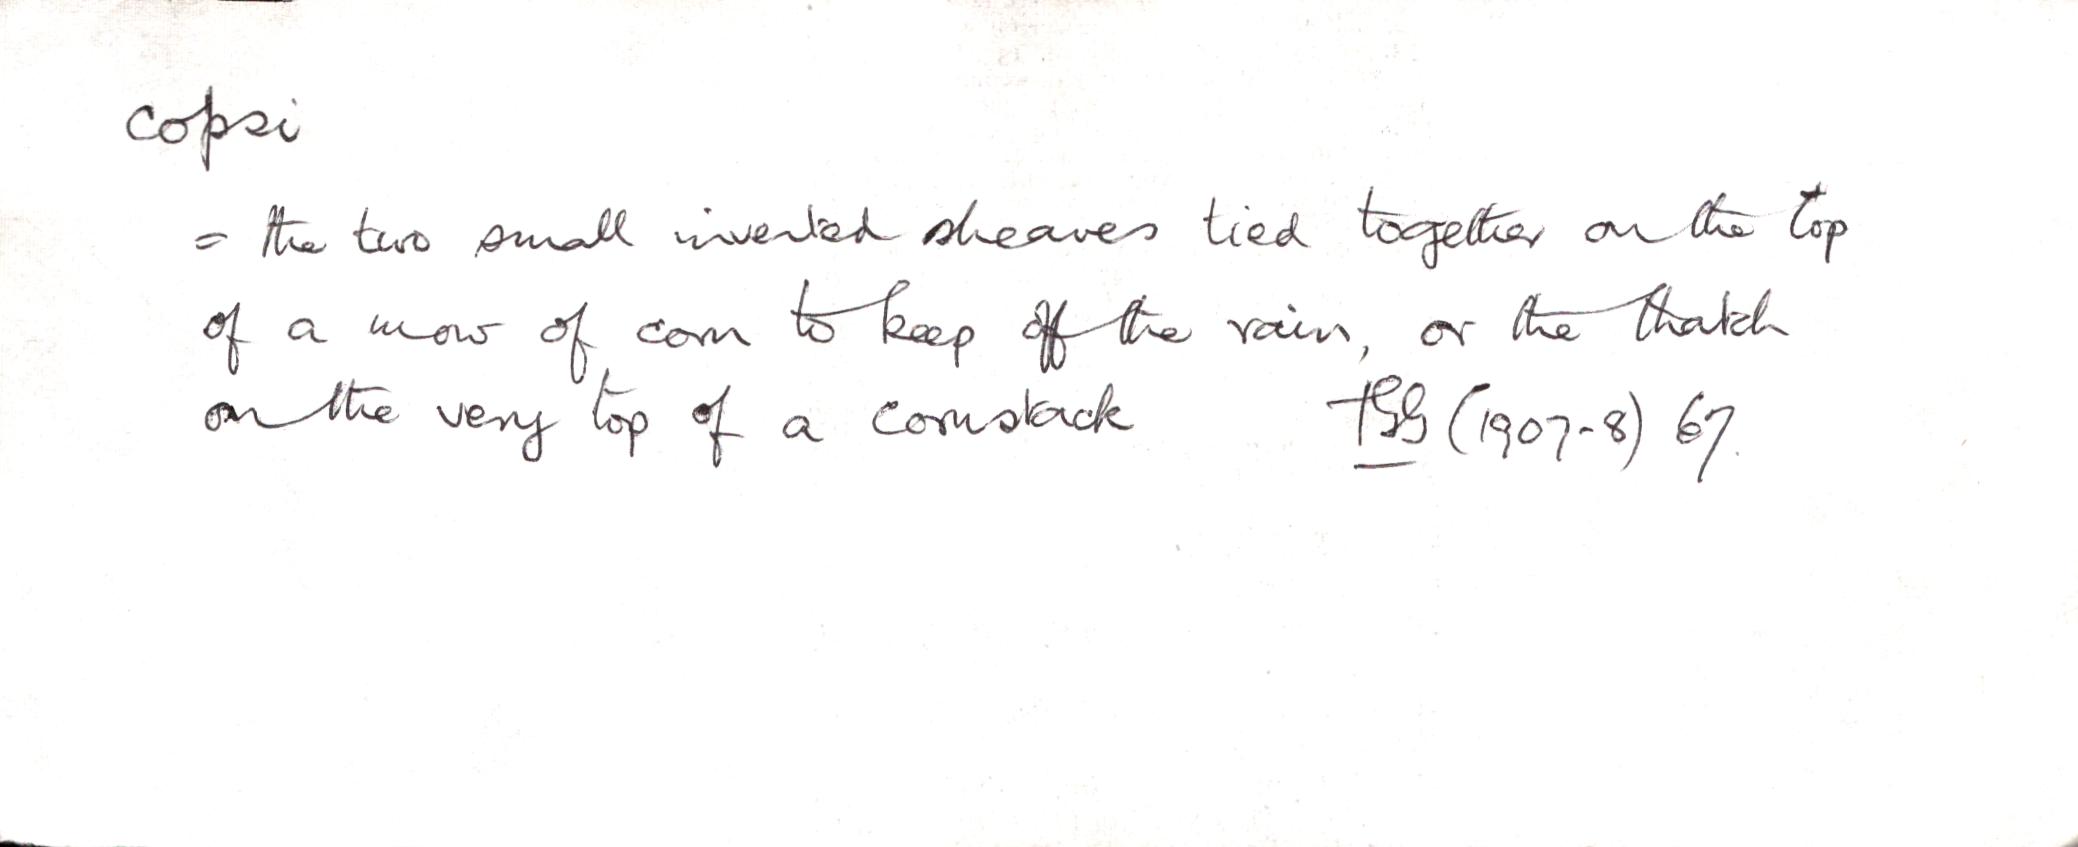 copsi
= the two small inverted sheaves tied together on the top
of a mow of corn to keep off the rain, or the thatch
on the very top of a cornstack TGG (1907-8) 67.